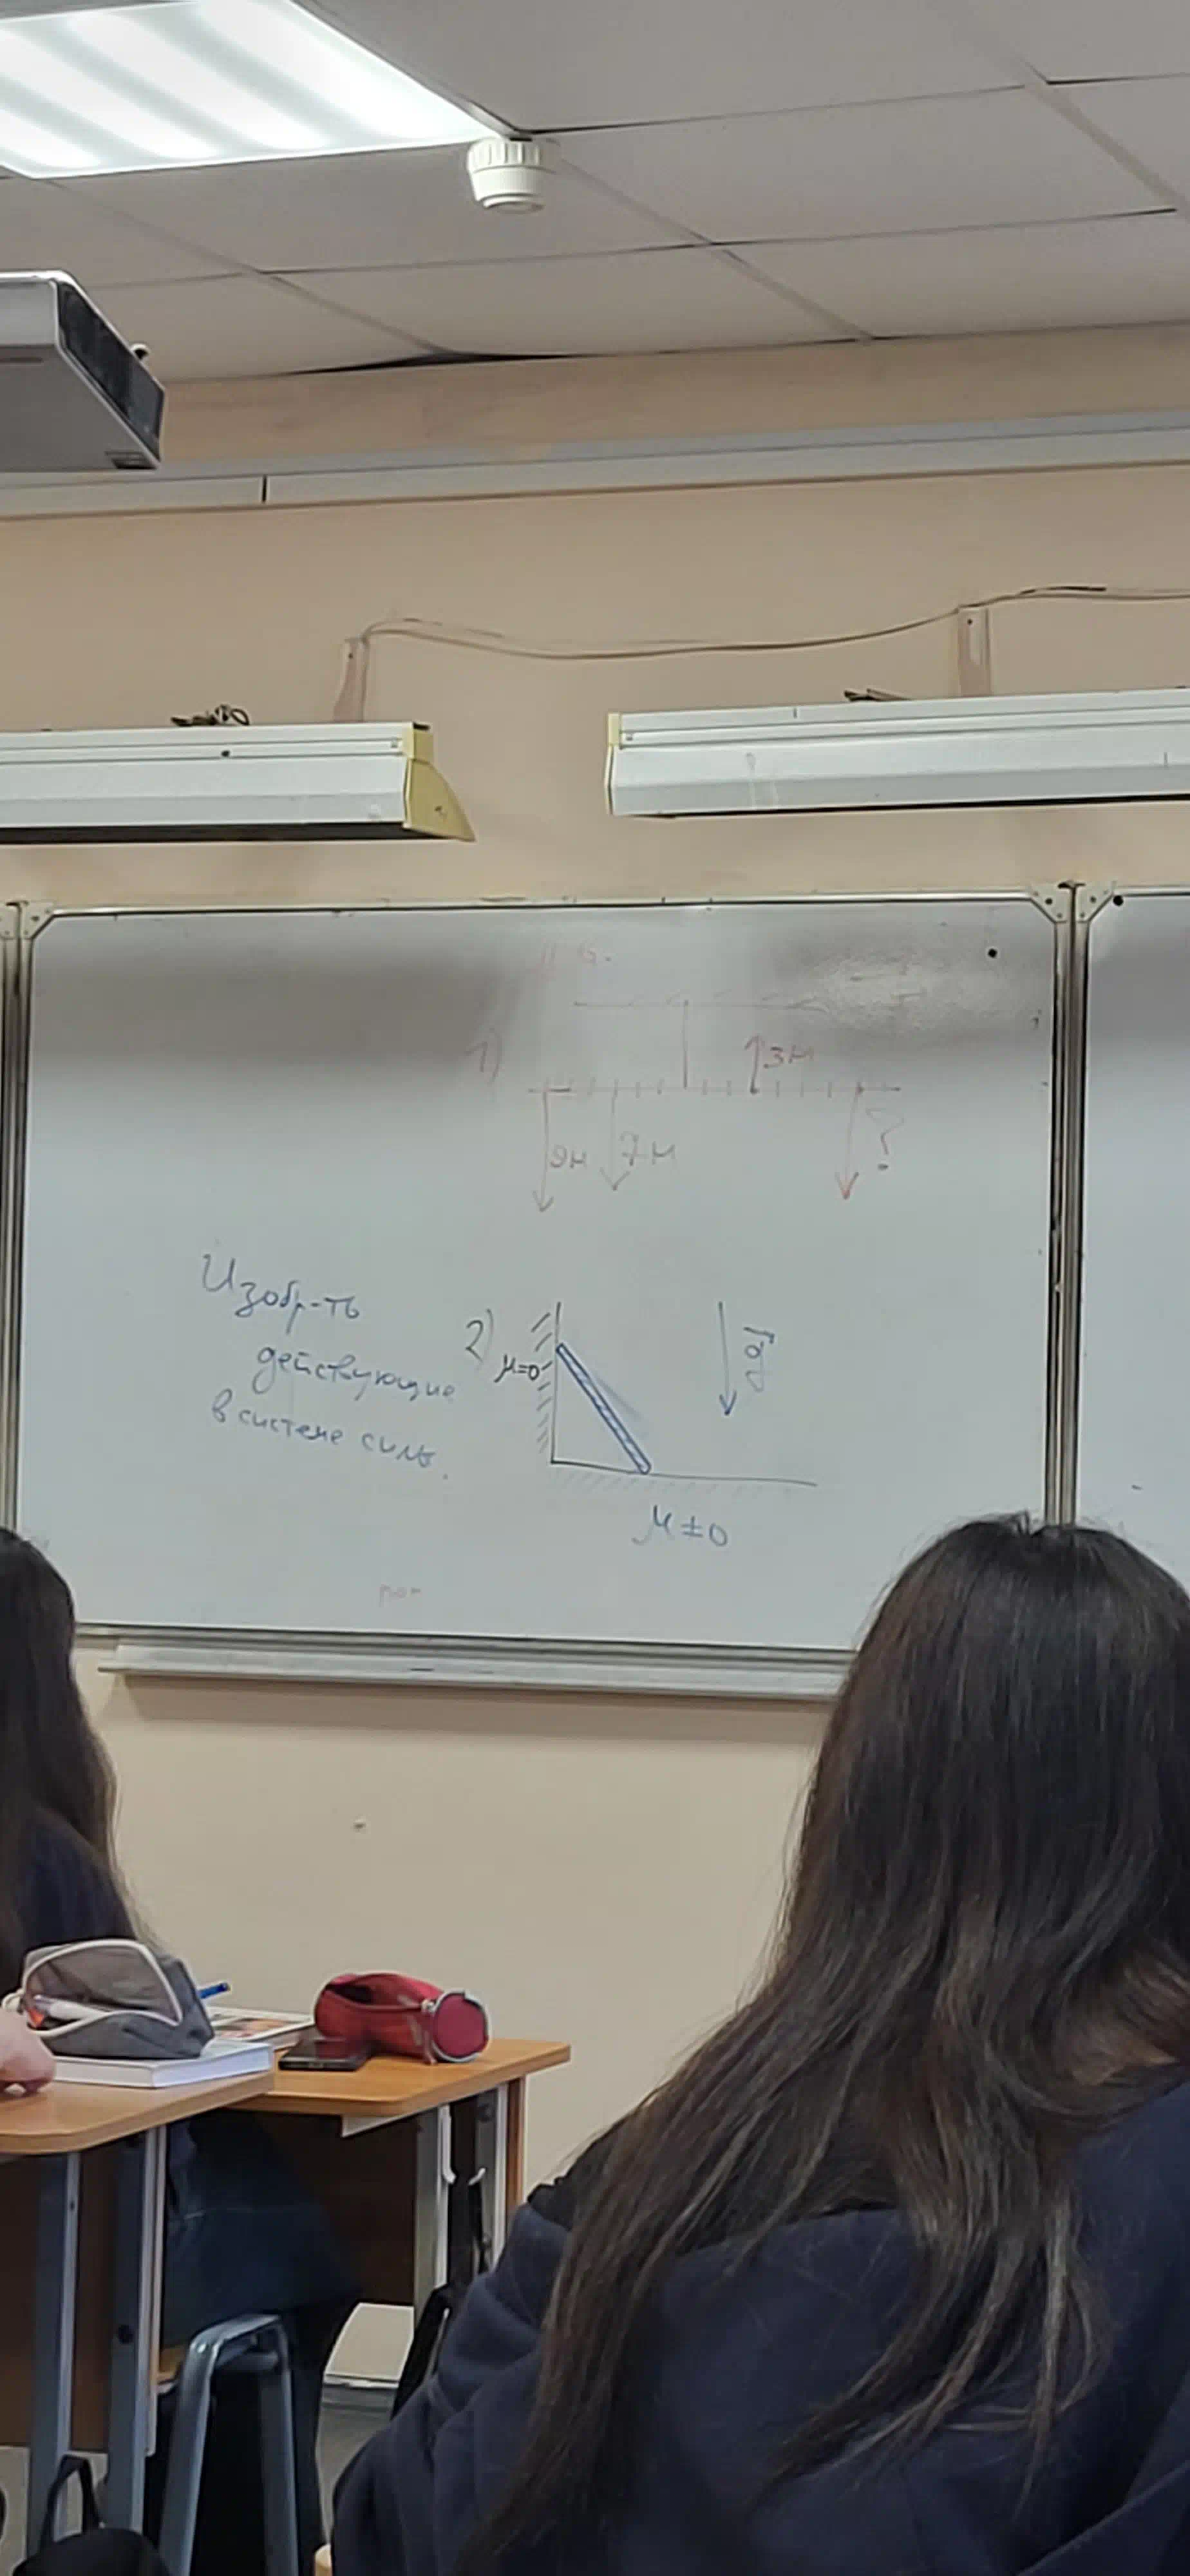 1)
3н
9н
7н
?
Изобр-ть
действующие
в системе силы.
2)
μ=0
g
μ≠0